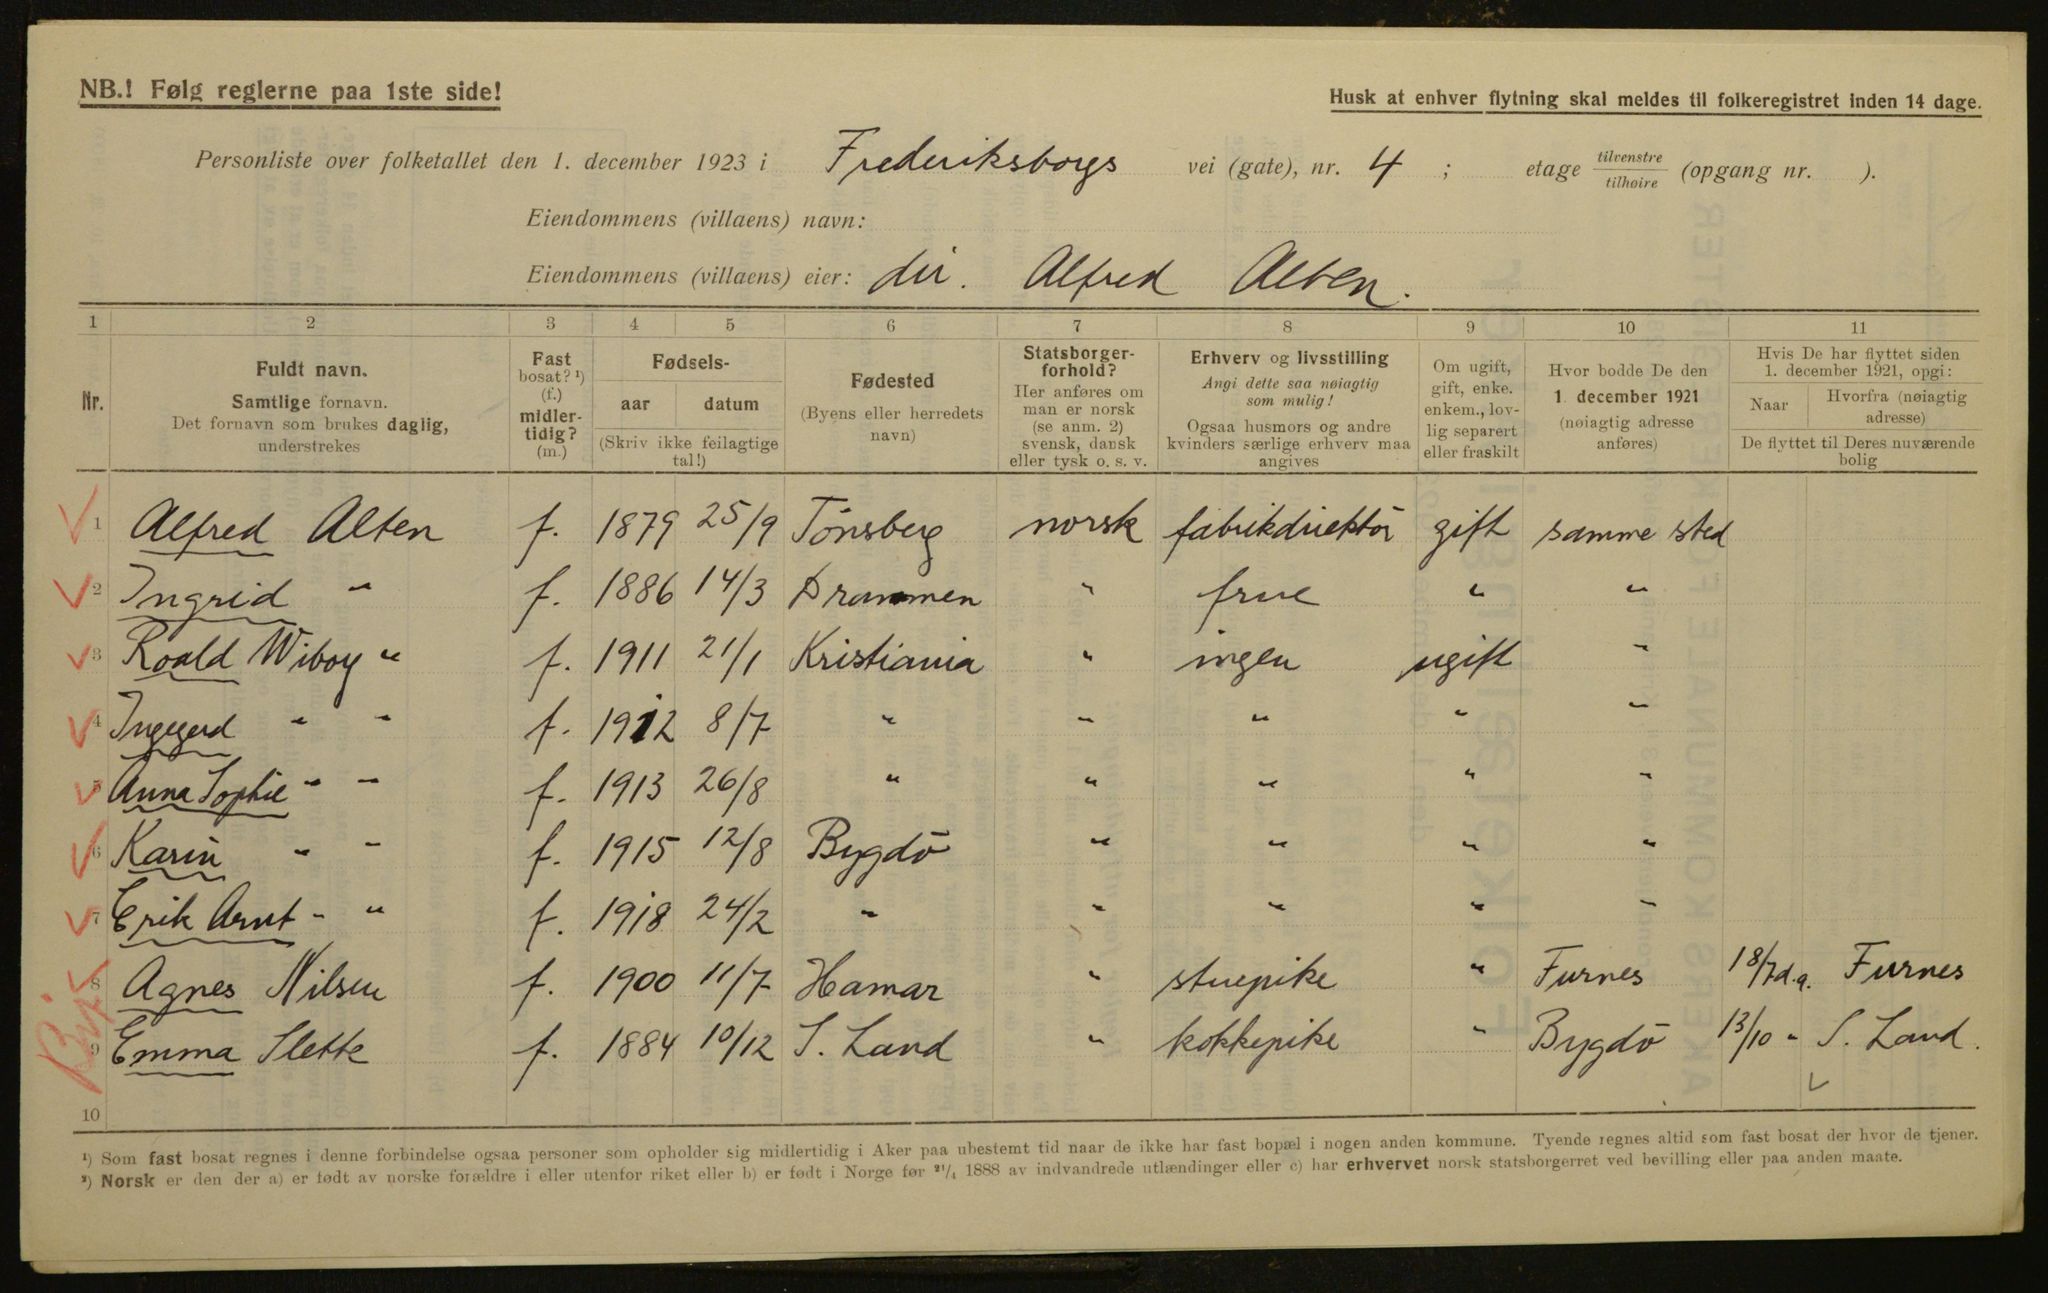 NB.! Følg reglerne paa 1ste side!
Husk at enhver flytning skal meldes til folkeregistret inden 14 dage.
Personliste over folketallet den 1. december 1923 i Frederiksborgs vei (gate), nr. 4 ; etage tilvenstre / tilhøire (opgang nr. ).
Eiendommens (villaens) navn:
Eiendommens (villaens) eier: dir. Alfred Alten.
1 2 3 4 5 6 7 8 9 10 11
Nr.
Fuldt navn.
Samtlige fornavn.
Det fornavn som brukes daglig,
understrekes
Fast
bosat? ¹)
(f.)
midler-
tidig?
(m.)
Fødsels-
aar datum
(Skriv ikke feilagtige
tal!)
Fødested
(Byens eller herredets
navn)
Statsborger-
forhold?
Her anføres om
man er norsk
(se anm. 2)
svensk, dansk
eller tysk o. s. v.
Erhverv og livsstilling
Angi dette saa nøiagtig
som mulig!
Ogsaa husmors og andre
kvinders særlige erhverv maa
angives
Om ugift,
gift, enke.
enkem., lov-
lig separert
eller fraskilt
Hvor bodde De den
1. december 1921
(nøiagtig adresse
anføres)
Hvis De har flyttet siden
1. december 1921, opgi:
Naar
Hvorfra (nøiagtig
adresse)
De flyttet til Deres nuværende
bolig
1 Alfred Alten f. 1879 25/9 Tönsberg norsk fabrikdirektör gift samme sted
2 Ingrid " f. 1886 14/3 Drammen " frue " "
3 Roald Wiborg " f. 1911 21/1 Kristiania " ingen ugift "
4 Ingegerd " " f. 1912 8/7 " " " " "
5 Anna Sophie " " f. 1913 26/8 " " " " "
6 Karin " " f. 1915 12/8 Bygdö " " " "
7 Erik Arnt " " f. 1918 24/2 " " " " "
8 Agnes Nilsen f. 1900 11/7 Hamar " stuepike " Furnes 18/7 d.a. Furnes
9 Emma Slette f. 1884 10/12 S. Land " kokkepike " Bygdö 13/10 " S. Land.
10
¹) Som fast bosat regnes i denne forbindelse ogsaa personer som opholder sig midlertidig i Aker paa ubestemt tid naar de ikke har fast bopæl i nogen anden kommune. Tyende regnes altid som fast bosat der hvor de tjener.
²) Norsk er den der a) er født av norske forældre i eller utenfor riket eller b) er født i Norge før ²¹/₄ 1888 av indvandrede utlændinger eller c) har erhvervet norsk statsborgerret ved bevilling eller paa anden maate.